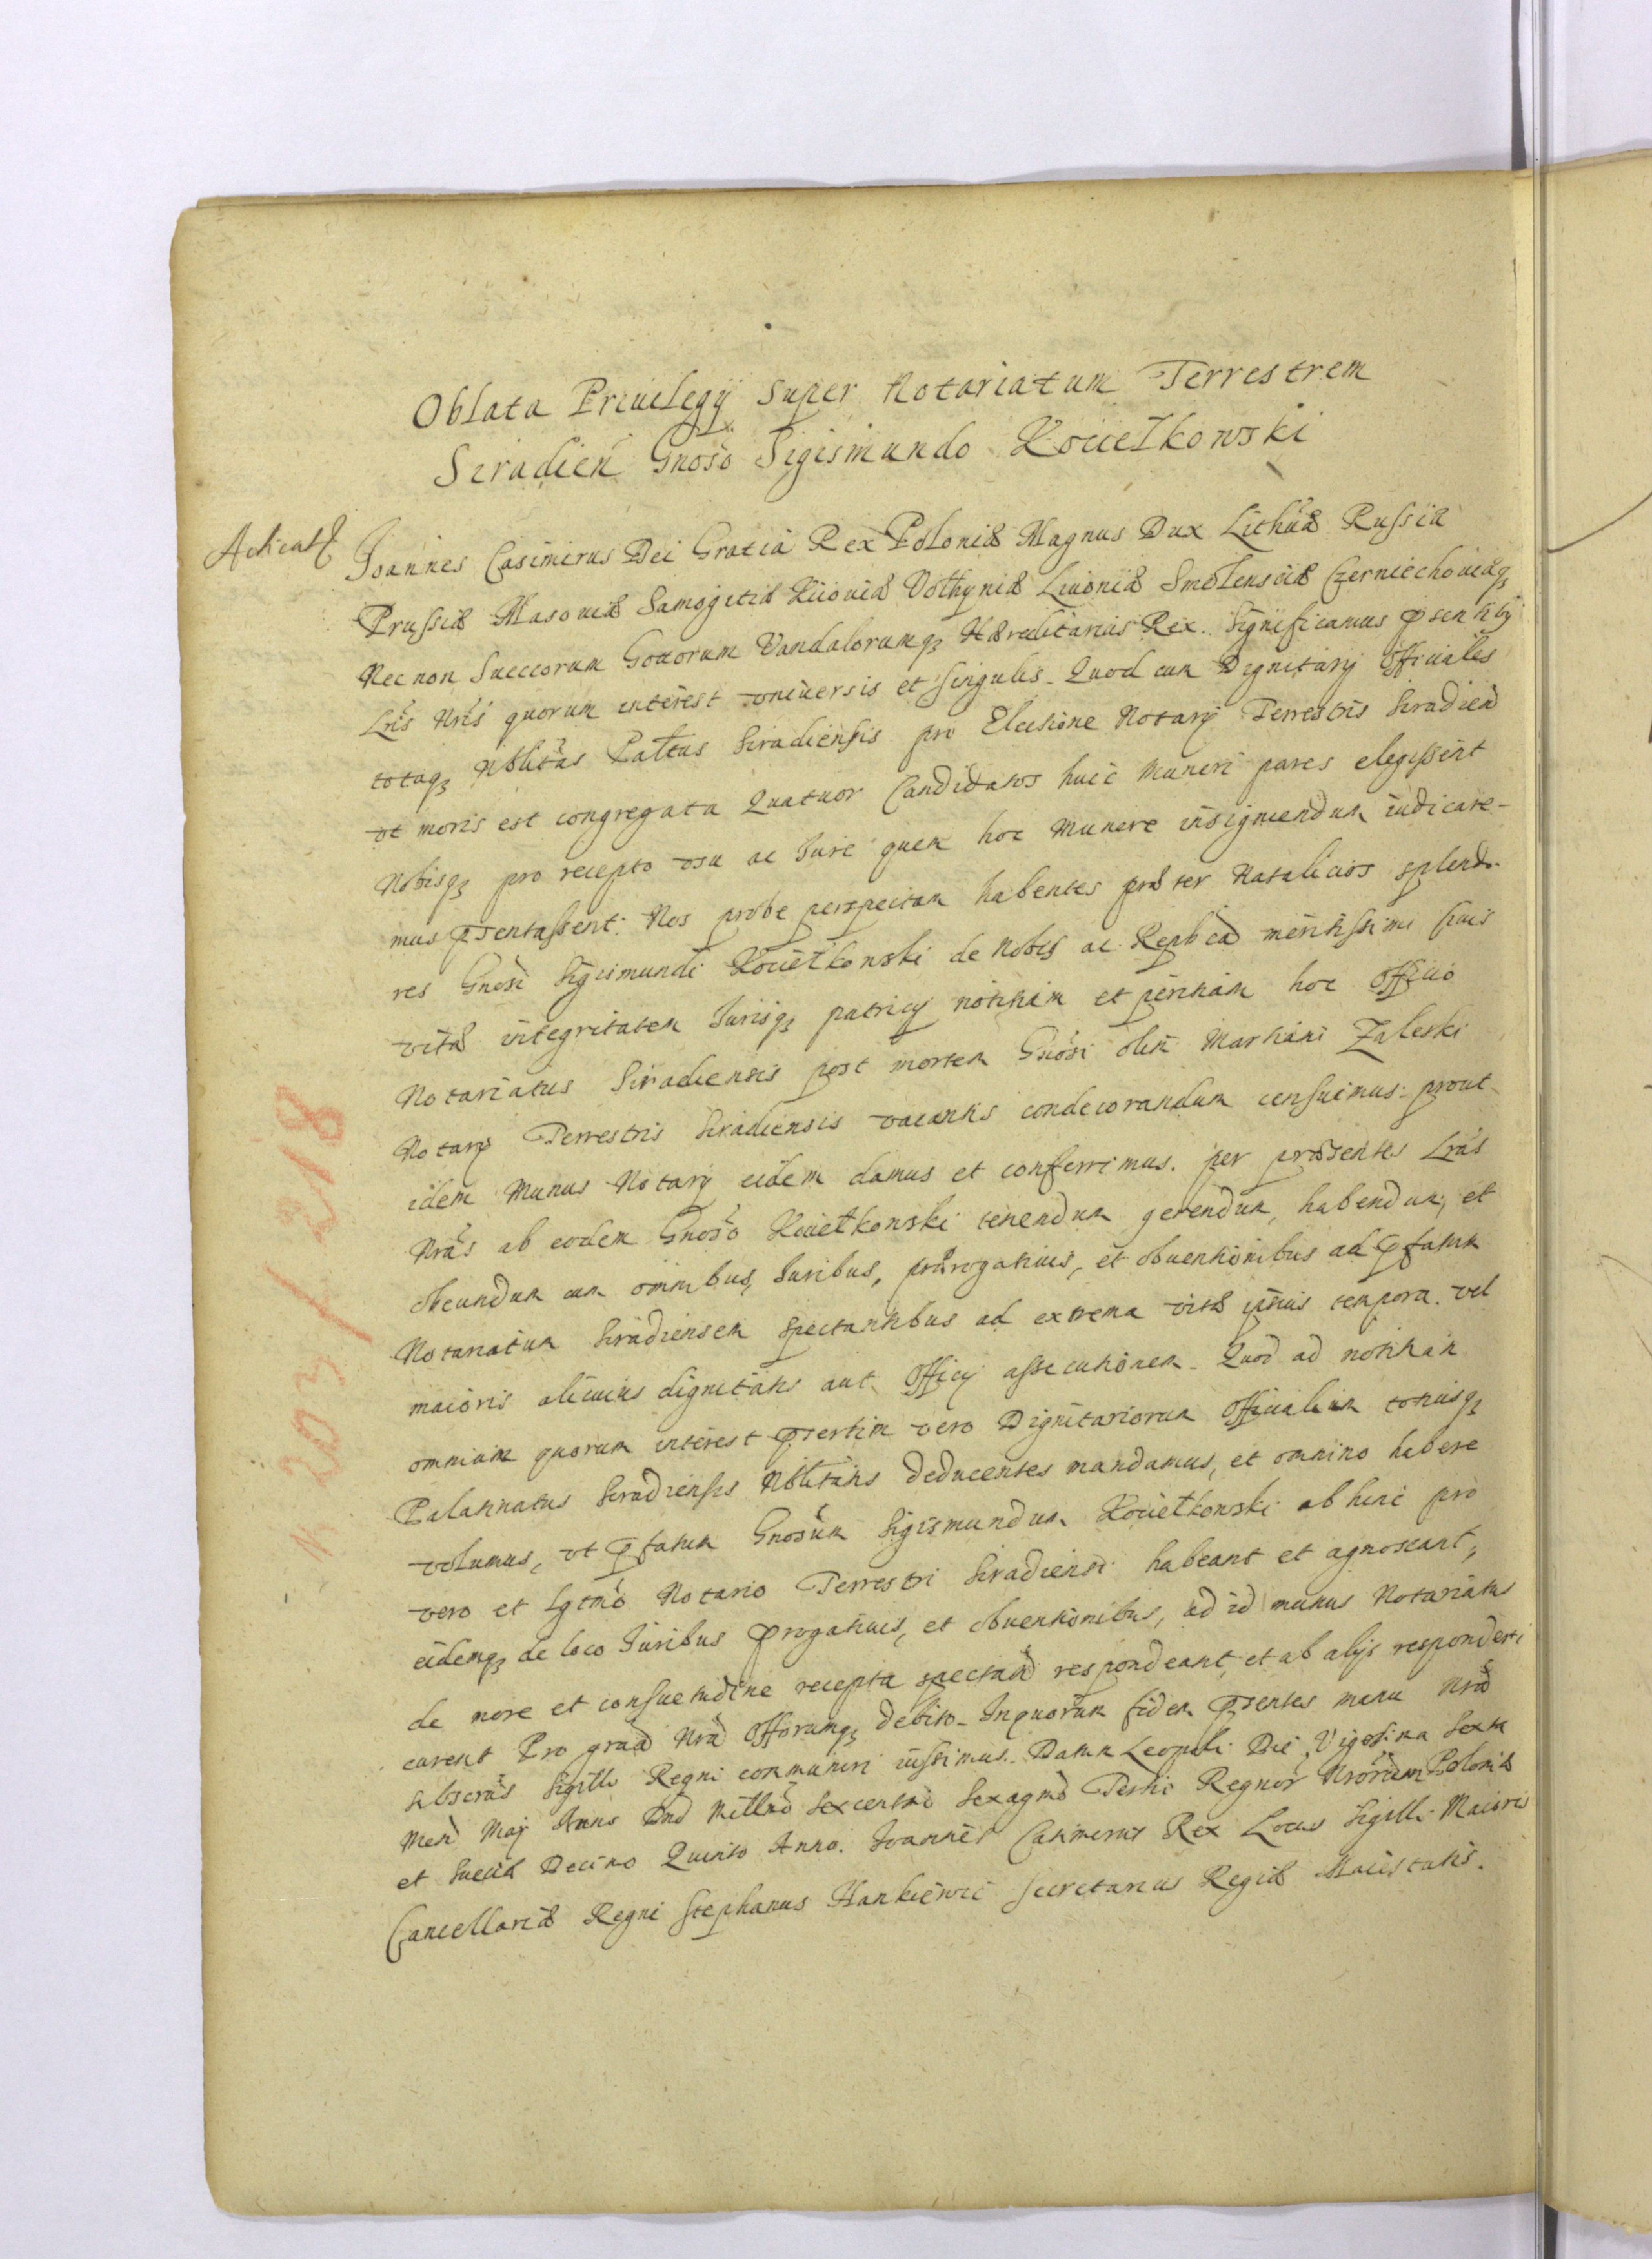 Oblata Priuilegÿ super Notariatum Terrestrem
Siradień Gnōso Sigismundo Kouetkowski
Joannes Casimirus Dei Gratia Rex Poloniæ Magnus Dux Lithūæ Russiæ
Prussiæ Masouiæ Samogitiæ Kiiouiæ Volhyniæ Liuoniæ Smolensciæ Czerniechouiæq3
Nec non Sueccorum Gottorum Vandalorumq3 Hæreditarius Rex. Significamus p̄sentibȝ
Lrīs Nrīs quorum interest vniuersis et singulis. Quod cum Dignitarÿ Officiales
totaq3 Nōblitas Paltūs Siradiensis pro Electione Notarÿ Terrestris Siradień
vt moris est congregata Quatuor Candidatos huic Muneri pares elegissent
Nobisq3 pro recepto vsu ac Iure quem hoc Munere insigniendum iudicare-
mus p̄sentassent. Nos probe perspectam habentes præter Natalicios splendo-
res Gnōsi Sigismundi Kouietkowski de Nobis ac Repb̄ca meritissimi suis
vitæ integritatem Jurisq3 patrÿ notitiam et peritiam hoc Officio
Notariatus Siradiensis post mortem Gnōsi olim Martiani Zaleski
Notarÿ Terrestris Siradiensis vacantis condecorandum censuimus: prout
idem Munus Notarÿ eidem damus et conferrimus. per præsentes Lrās
Nrās ab eodem Gnōso Kouietkowski tenendum gerendum, habendum, et
obeundum cum omnibus, Iuribus, prærogatiuis, et obuentionibus ad p̄fatum
Notariatum Siradiensem spectantibus ad extrema vitæ ipsius tempora. vel
maioris alicuius dignitatis aut Officÿ assecutionem. Quod ad notitiam
omnium quorum interest p̄sertim vero Dignitariorum Officialium totiusq3
Palatinatus Siradiensis Nōblitatis deducentes mandamus, et omnino habere
volumus, vt p̄fatum Gnōsum Sigismundum Kouietkowski abhinc pro
vero et Lgtmō Notario Terrestri Siradiensi habeant et agnoscant,
eidemq3 de loco Iuribus p̄rogatiuis, et obuentionibus, ad id munus Notariatus
de more et consuetudine recepta spectań respondeant, et ab alÿs responderi
curent Pro gra̅ Nra̅ Offorumq3 debito. In quorum fidem p̄sentes manu Nra̅
subscrās Sigillo Regni communiri iussimus. Datum Leopoli Die Vigesima Sexta
Meń Maÿ Anno Dn̄i Milln̄o Sexcentn̄o Sexagmō Tertio Regnor̄ Nrōrum Poloniæ
et Sueciæ Decimo Quinto Anno. Joannes Casimirus Rex Locus Sigilli Maioris
Cancellariæ Regni Stephanus Hankiewic Secretarius Regiæ Maiestatis.
N 203 / 218